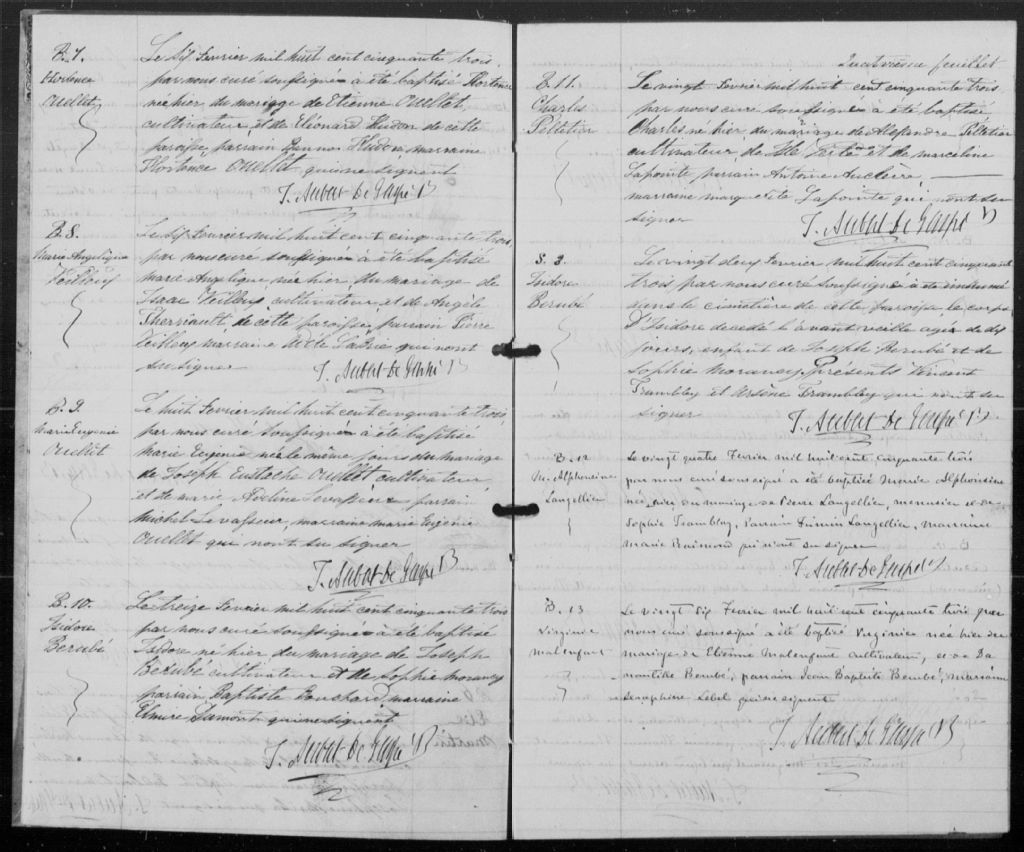 B. 7.
Hortence
Ouellet
Le six Fevrier mil huit cent cinquante trois
par nous curé soussignée a été baptisé Hortence
née hier du mariage de Etienne Ouellet,
cultivateur et de Eléonard Hudon de cette
paroisse, parrain Hudon, marraine
Hortence Ouellet qui ne signent
T. Aubert De Gaspé Ptr
B. 8.
Marie Angelique
Veilleux
Le six Fevrier mil huit cent cinquante trois,
par nous curé soussignée a été baptisé
marie Angelique née hier du mariage de
Isaac Veilleux cultivateur, et de Angèle
Therriault de cette paroisse, parrain Pierre
Veilleux marraine qui n'ont
su signer
T. Aubert De Gaspé Ptr
B. 9.
Marie Eugenie
Ouellet
Le huit Fevrier mil huit cent cinquante trois,
par nous curé Soussignée a été baptisé
marie Eugenie née le même jour du mariage
de Joseph Eustache Ouellet cultivateur,
et de marie Adeline Levasseur parrain
Michel Levasseur, marraine marie Eugenie
Ouellet qui n'ont su signer
T. Aubert De Gaspé Ptr
B. 10.
Isidore
Berubé
Le treize Fevrier mil huit cent cinquante trois
par nous curé soussignée a été baptisé
Isidore né hier du mariage de Joseph
Berubé cultivateur et de Sophie morancy
parrain Baptiste Bouchard, marraine
Elmire Dumont qui ne signent
T. Aubert De Gaspé Ptr
Quatrième feuillet
B. 11.
Charles
Pelletier
Le vingt Fevrier mil huit cent cinquante trois
par nous curé soussignée a été baptisé
Charles né hier du mariage de Alexandre Pelletier
cultivateur de Isle Verte et de marceline
Lapointe parrain Antoine Auclaire,
marraine marguerite Lapointe qui n'ont su
signer
T. Aubert De Gaspé Ptr
S. 3.
Isidore
Berubé
Le vingt deux Fevrier, mil huit cent cinquante
trois, par nous curé soussignée a été inhumé
dans le cimetière de cette paroisse le corps
d'Isidore decedé l'avant veille agé de dix
jours, enfant de Joseph Berubé et de
Sophie Morancy, Présents Vincent
Trambley et Arsène Trambley qui n'ont su
signer
T. Aubert De Gaspé Ptr
B. 12
M. Alphonsine
Langellier
Le vingt quatre Fevrier mil huit cent cinquante trois
par nous curé soussigné a été baptisée Marie Alphonsine
née hier du mariage de Pierre Langellier, menuisier et de
Sophie Tramblay, Parrain Firmin Langellier, marraine
Marie qui n'ont su signer
T. Aubert De Gaspé Ptr
B. 13
Virginie
Malenguet
Le vingt six Fevrier mil huit cent cinquante trois par
nous curé soussigné a été baptisé Virginie née hier du
mariage de Etienne Malenguet cultivateur, et de Da
mantille Berubé, parrain Jean Baptiste Berubé, marraine
Seraphine Lebel qui ne signent
T. Aubert De Gaspé Ptr